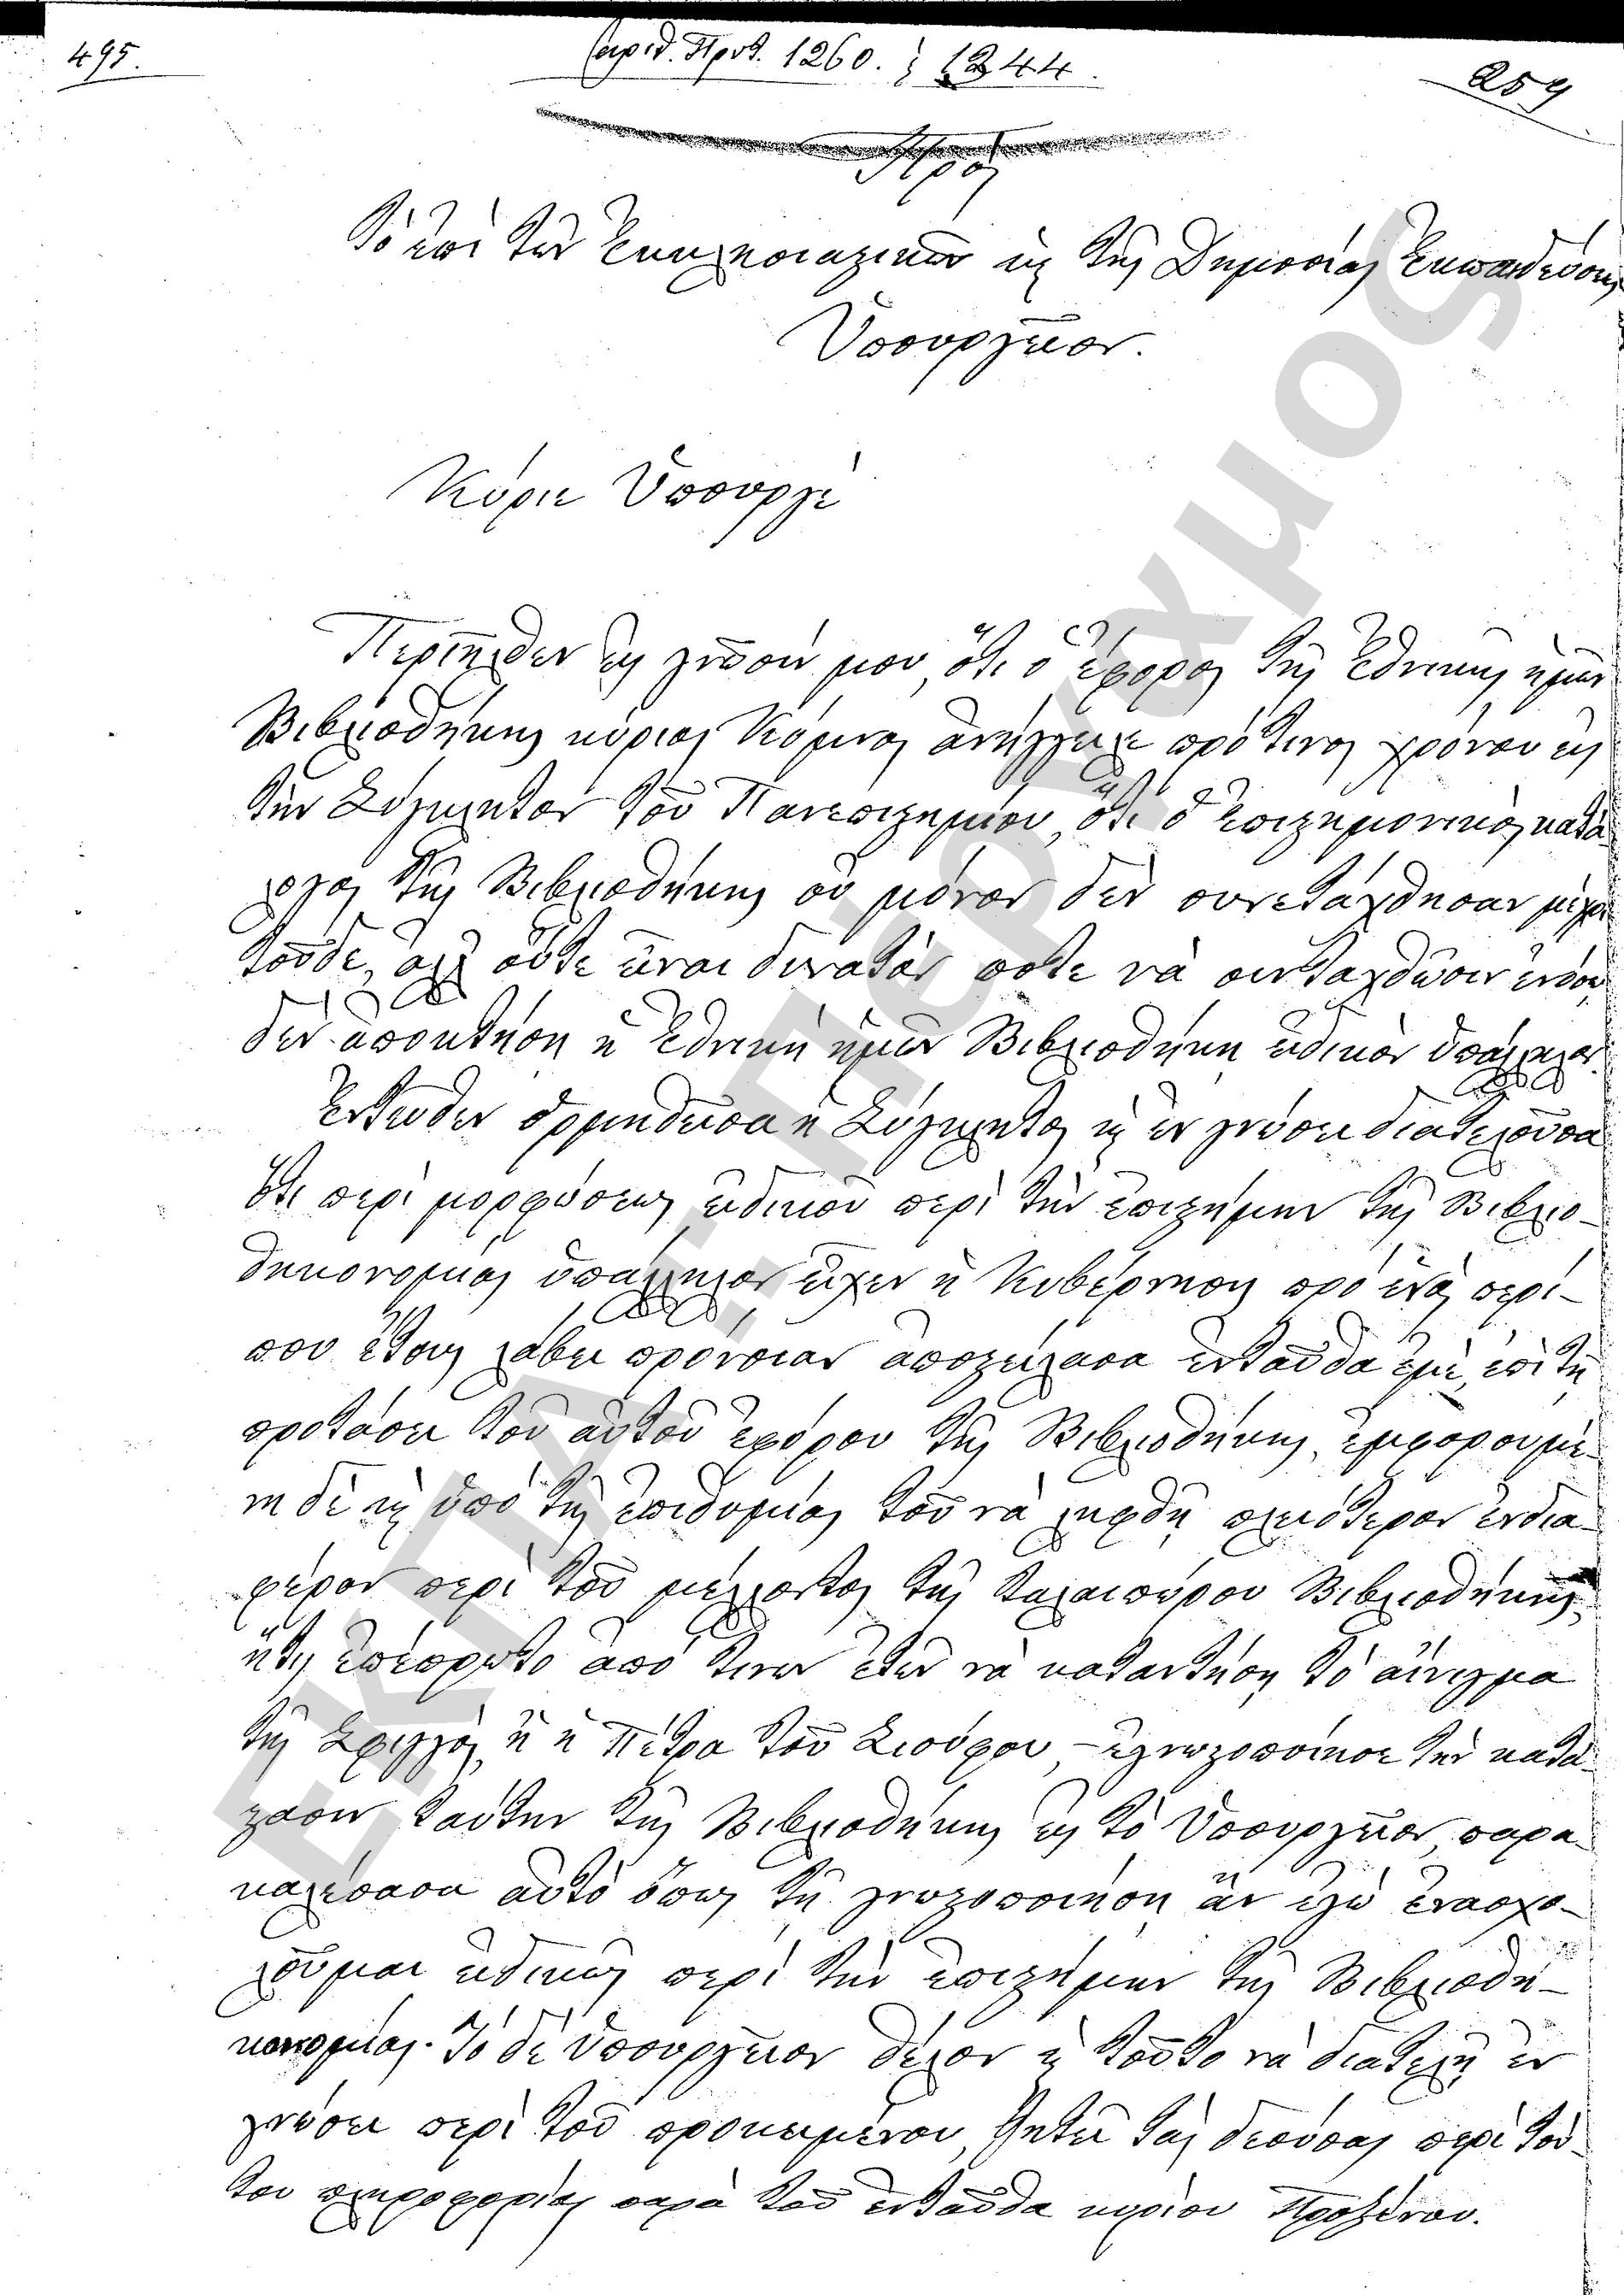 495.
Ἀριθ. Πρωτ. 1260. 1244.
259
Πρὸς
Τὸ ἐπὶ τῶν Ἐκκλησιαστικῶν καὶ τῆς Δημοσίας Ἐκπαιδεύσεως
Ὑπουργεῖον.
Κύριε Ὑπουργέ
Περιῆλθεν εἰς γνῶσίν μου, ὅτι ὁ ἔφορος τῆς Ἐθνικῆς ἡμῶν
Βιβλιοθήκης κύριος Κόμνος ἀνήγγειλε πρό τινος χρόνου εἰς
τὴν Σύγκλητον τοῦ Πανεπιστημίου, ὅτι ὁ ἐπιστημονικὸς κατά-
λογος τῆς Βιβλιοθήκης οὐ μόνον δὲν συνετάχθησαν μέχρι
τοῦδε, ἀλλ' οὔτε εἶναι δυνατὸν ποτε νὰ συνταχθῶσιν ἐνόσῳ
δὲν ἀποκτήσῃ ἡ Ἐθνικὴ ἡμῶν Βιβλιοθήκη εἰδικὸν ὑπάλληλον.
Ἐντεῦθεν ὁρμηθεῖσα ἡ Σύγκλητος καὶ ἐν γνώσει διατελοῦσα
ὅτι περὶ μορφώσεως εἰδικοῦ περὶ τὴν ἐπιστήμην τῆς Βιβλιο-
θηκονομίας ὑπαλλήλου εἶχεν ἡ Κυβέρνησις πρὸ ἑνὸς περί-
που ἔτους λάβει πρόνοιαν ἀποστείλασα ἐνταῦθα ἐμὲ, ἐπὶ τῇ
προτάσει τοῦ αὐτοῦ ἐφόρου τῆς Βιβλιοθήκης, ἐμφορουμέ-
νη δὲ καὶ ὑπὸ τῆς ἐπιθυμίας τοῦ νὰ ληφθῇ πλειότερον ἐνδια-
φέρον περὶ τοῦ μέλλοντος τῆς ταλαιπώρου Βιβλιοθήκης,
ἥτις ἐπέπρωτο ἀπό τινων ἐτῶν νὰ καταντήσῃ τὸ αἴνιγμα
τῆς Σφιγγὸς, ἢ ἡ Πέτρα τοῦ Σισύφου, – ἐγνωστοποίησε τὴν κατά-
στασιν ταύτην τῆς Βιβλιοθήκης εἰς τὸ Ὑπουργεῖον, παρα-
καλέσασα αὐτὸ ὅπως τῇ γνωστοποιήσῃ ἂν ἐγὼ ἐνασχο-
λοῦμαι εἰδικῶς περὶ τὴν ἐπιστήμην τῆς Βιβλιοθη-
κονομίας. Τὸ δὲ Ὑπουργεῖον θέλον καὶ τοῦτο νὰ διατελῇ ἐν
γνώσει περὶ τοῦ προκειμένου, ζητεῖ τὰς δεούσας περὶ τού-
του πληροφορίας παρὰ τοῦ ἐνταῦθα κυρίου Προξένου.
ΕΚΠΑ - Πέργαμος